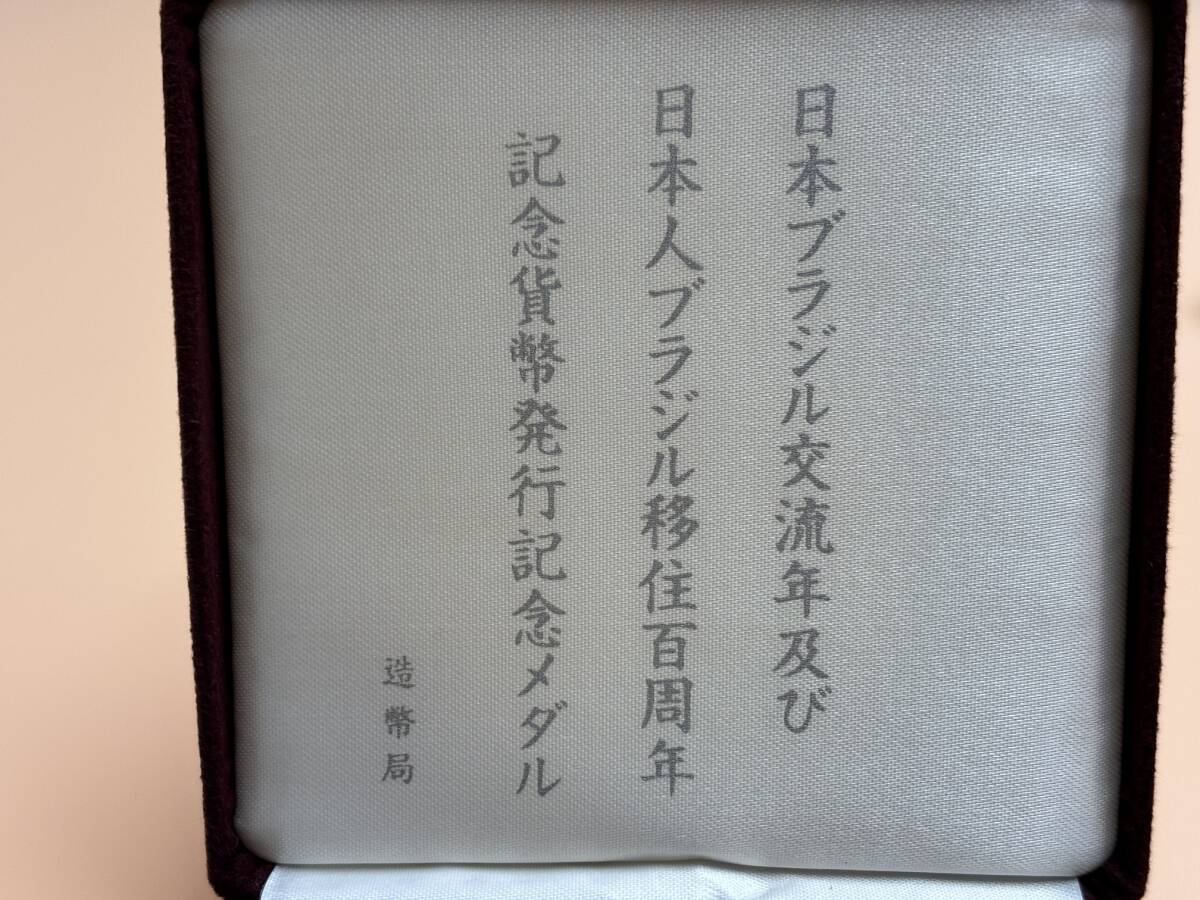 日本ブラジル交流年及び
日本人ブラジル移住百周年
記念貨幣発行記念メダル
造幣局